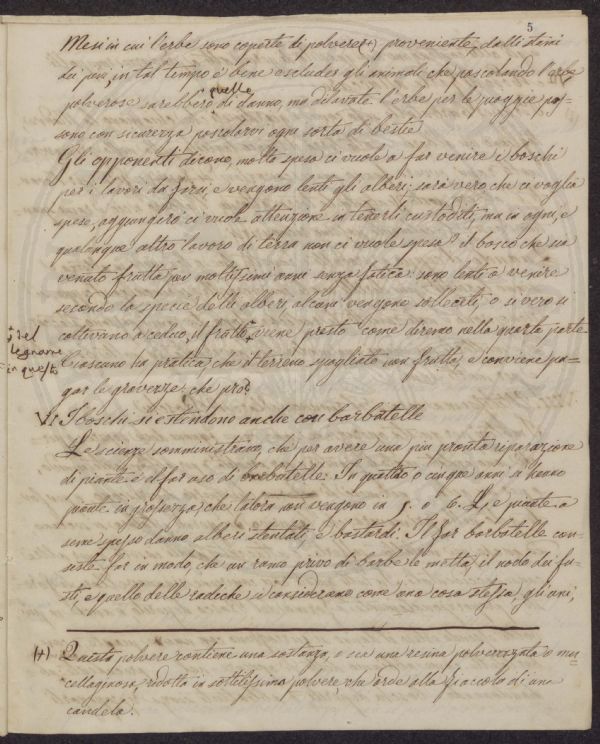 5
Mesi in cui l'erbe sono coperte di polvere(+) proveniente dalli stami
dei pini, in tal tempo è bene escludere gli animali che pascolando l'erbe
quello
polverose sarebbero di danno, ma delavate l'erbe per le pioggie pos-
sono con sicurezza pascolarvi ogni sorta di bestie
Gli opponenti dicono, molta spesa ci vuole a far venire i boschi
per i lavori da farsi, e vengono lenti gli alberi; sarà vero che ci voglia
spese, aggiungerò ci vuole attenzione in tenerli custoditi, ma in ogni, e
qualunque altro lavoro di terra non ci vuole spesa? il bosco che sia
venuto frutta per moltissimi anni senza fatica: sono lenti a venire
secondo la specie delli alberi, alcuni vengono solleciti, o si vero si
coltivano a ceduo, il frutto viene presto come diremo nella quarta parte
+ del
legname
in questo
Ciascuno ha pratica, che il terreno spogliato non frutta, e conviene pa-
gar le gravezze, che pro?
VI I boschi si estendono anche con barbatelle
Le scienze somministrano, che per avere una più pronta riparazione
di piante è il far uso di barbatelle. In quattro o cinque anni si hanno
piante in grossezza, che talora non vengono in 5. o 6. Le piante a
seme spesso danno alberi stentati e bastardi. Il far barbatelle con-
siste far in modo, che un ramo privo di barbe le metta, il nodo dei fu-
sti, e quello delle radiche si considerano come una cosa stessa, gli uni,
(+) Questa polvere contiene una sostanza, o sia una resina polverizzata o mu-
cellaginosa, ridotta in sottilissima polvere, che arde alla fiaccola di una
candela.